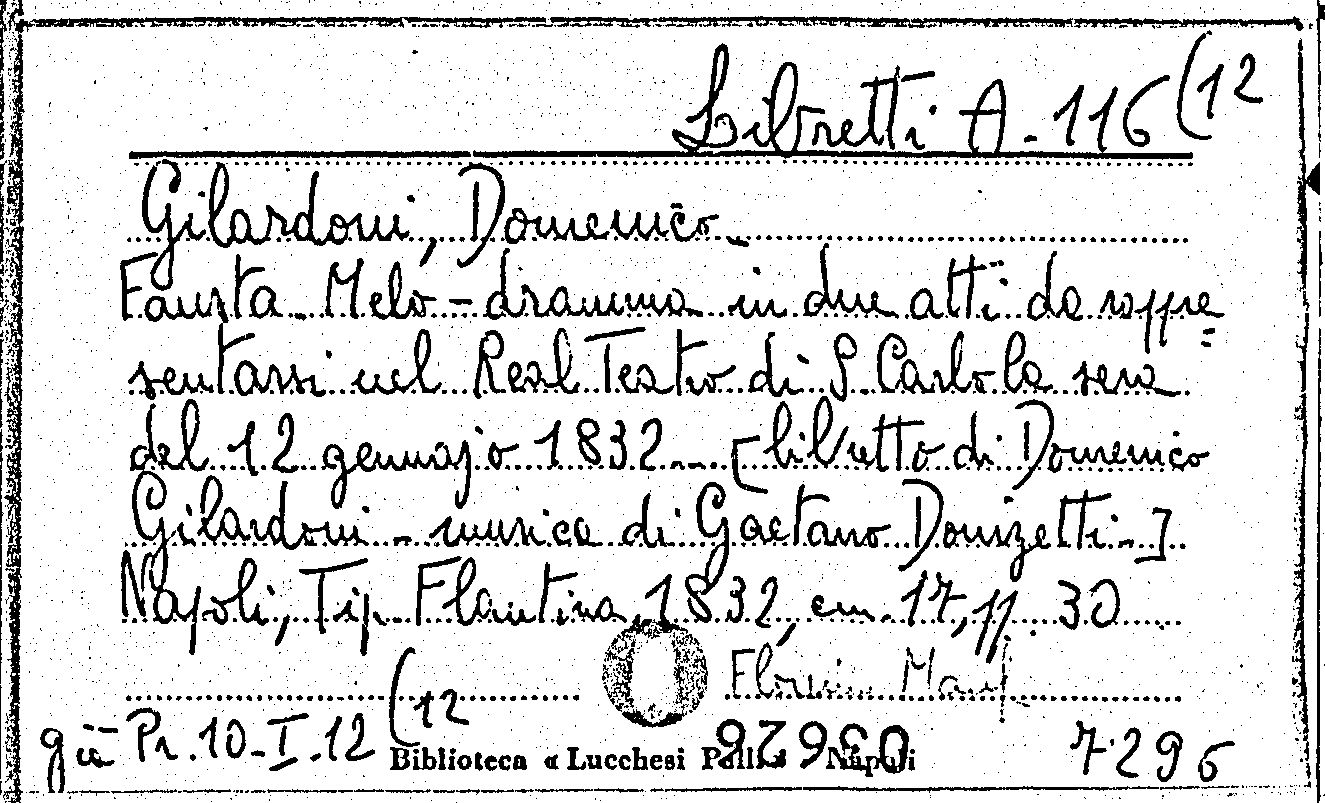 Libretti A-116(12
Gilardoni, Domenico-
Fausta. Melo-dramma in due atti da rappre=
sentarsi nel Real Teatro di S. Carlo la sera
del 12 gennajo 1832 - [libretto di Domenico
Gilardoni - musica di Gaetano Donizetti-]
Napoli, Tip. Flautina, 1832, cm. 17, pp. 30
già Pr. 10-I-12(12
Biblioteca « Lucchesi Palli » Napoli
7296